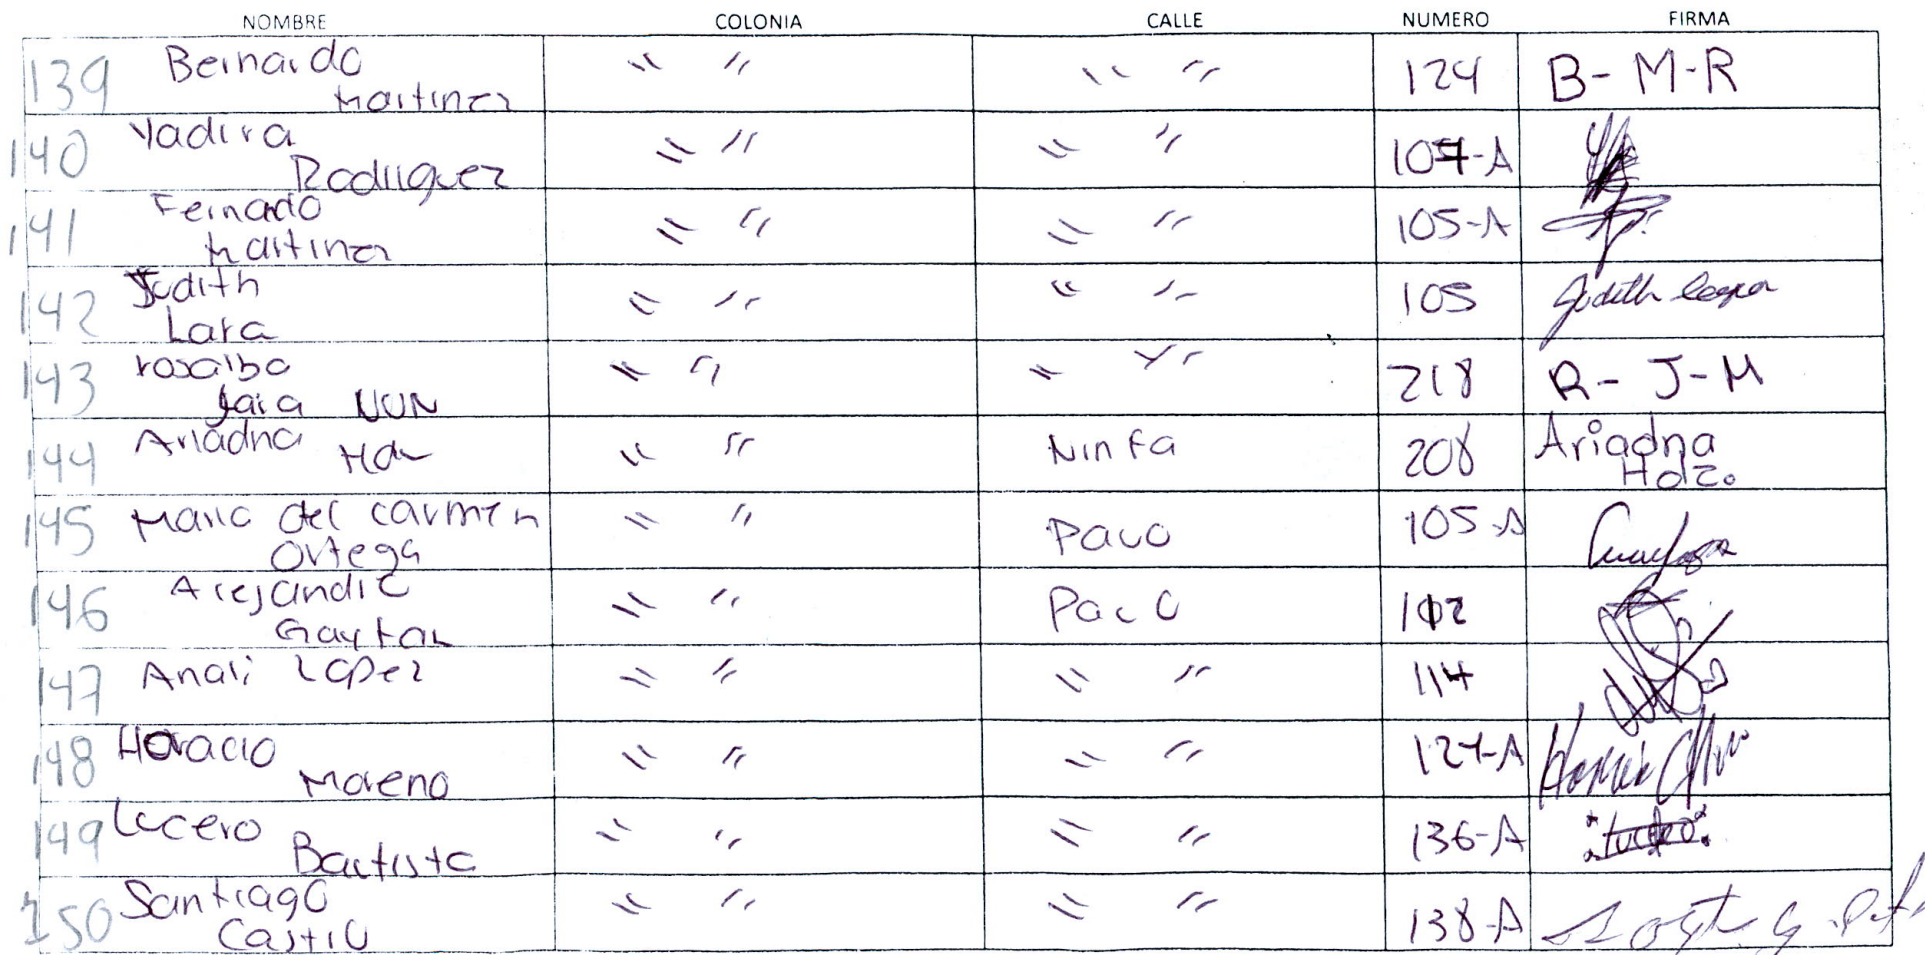 NOMBRE COLONIA CALLE NUMERO FIRMA
139 Bernardo Martinez " " " " 124 B-M-R
140 Yadira Rodriguez " " " " 107-A
141 Fernado Martinez " " " " 105-A
142 Judith Lara " " " " 105 Judith
143 rosalba Jara NUN " " " " 218 R-J-M
144 Ariadna " " Ninfa 208 Ariadna Hdz.
145 Maria del carmen Ortega " " Paco 105-A
146 Alejandro Gaytan " " Paco 102
147 Anali Lopez " " " " 114
148 Horacio Moreno " " " " 127-A
149 Lucero Bautista " " " " 136-A
150 Santiago Castio " " " " 138-A